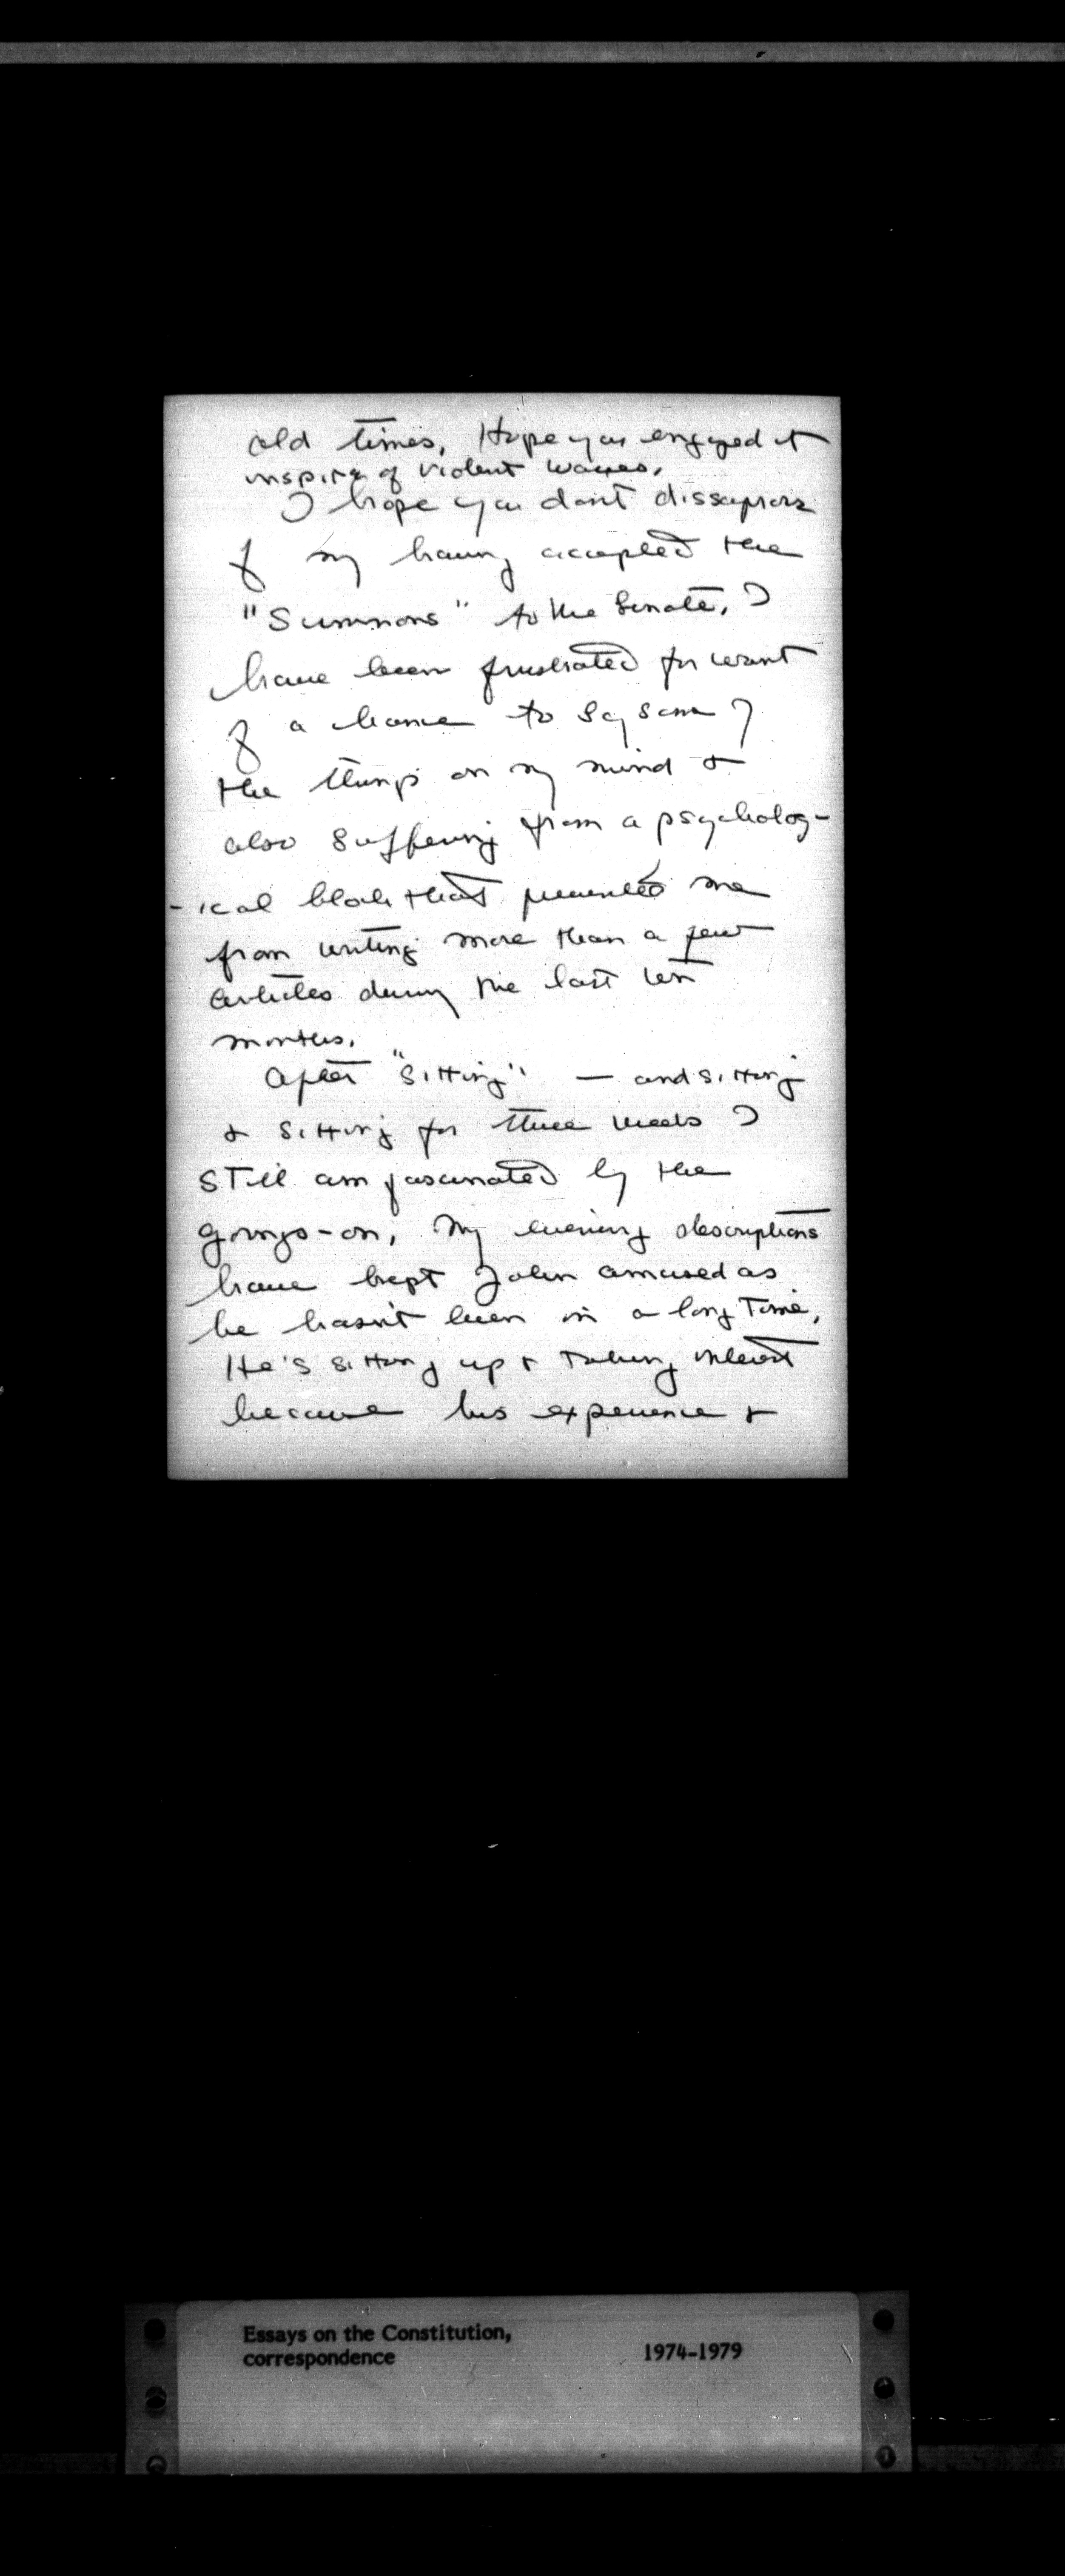 old times. Hope you enjoyed it
inspite of violent waves.
I hope you don't dissaprove
of my having accepted the
"Summons" to the Senate. I
have been frustrated for want
of a chance to say some of
the things on my mind &
also suffering from a psycholog-
-ical block that prevented me
from writing more than a few
articles during the last ten
months.
After "sitting" — and sitting
& sitting for three weeks I
still am fascinated by the
goings-on. My evening descriptions
have kept John amused as
he hasn't been in a long time.
He's sitting up & taking interest
because his experience &
Essays on the Constitution,
correspondence
1974-1979